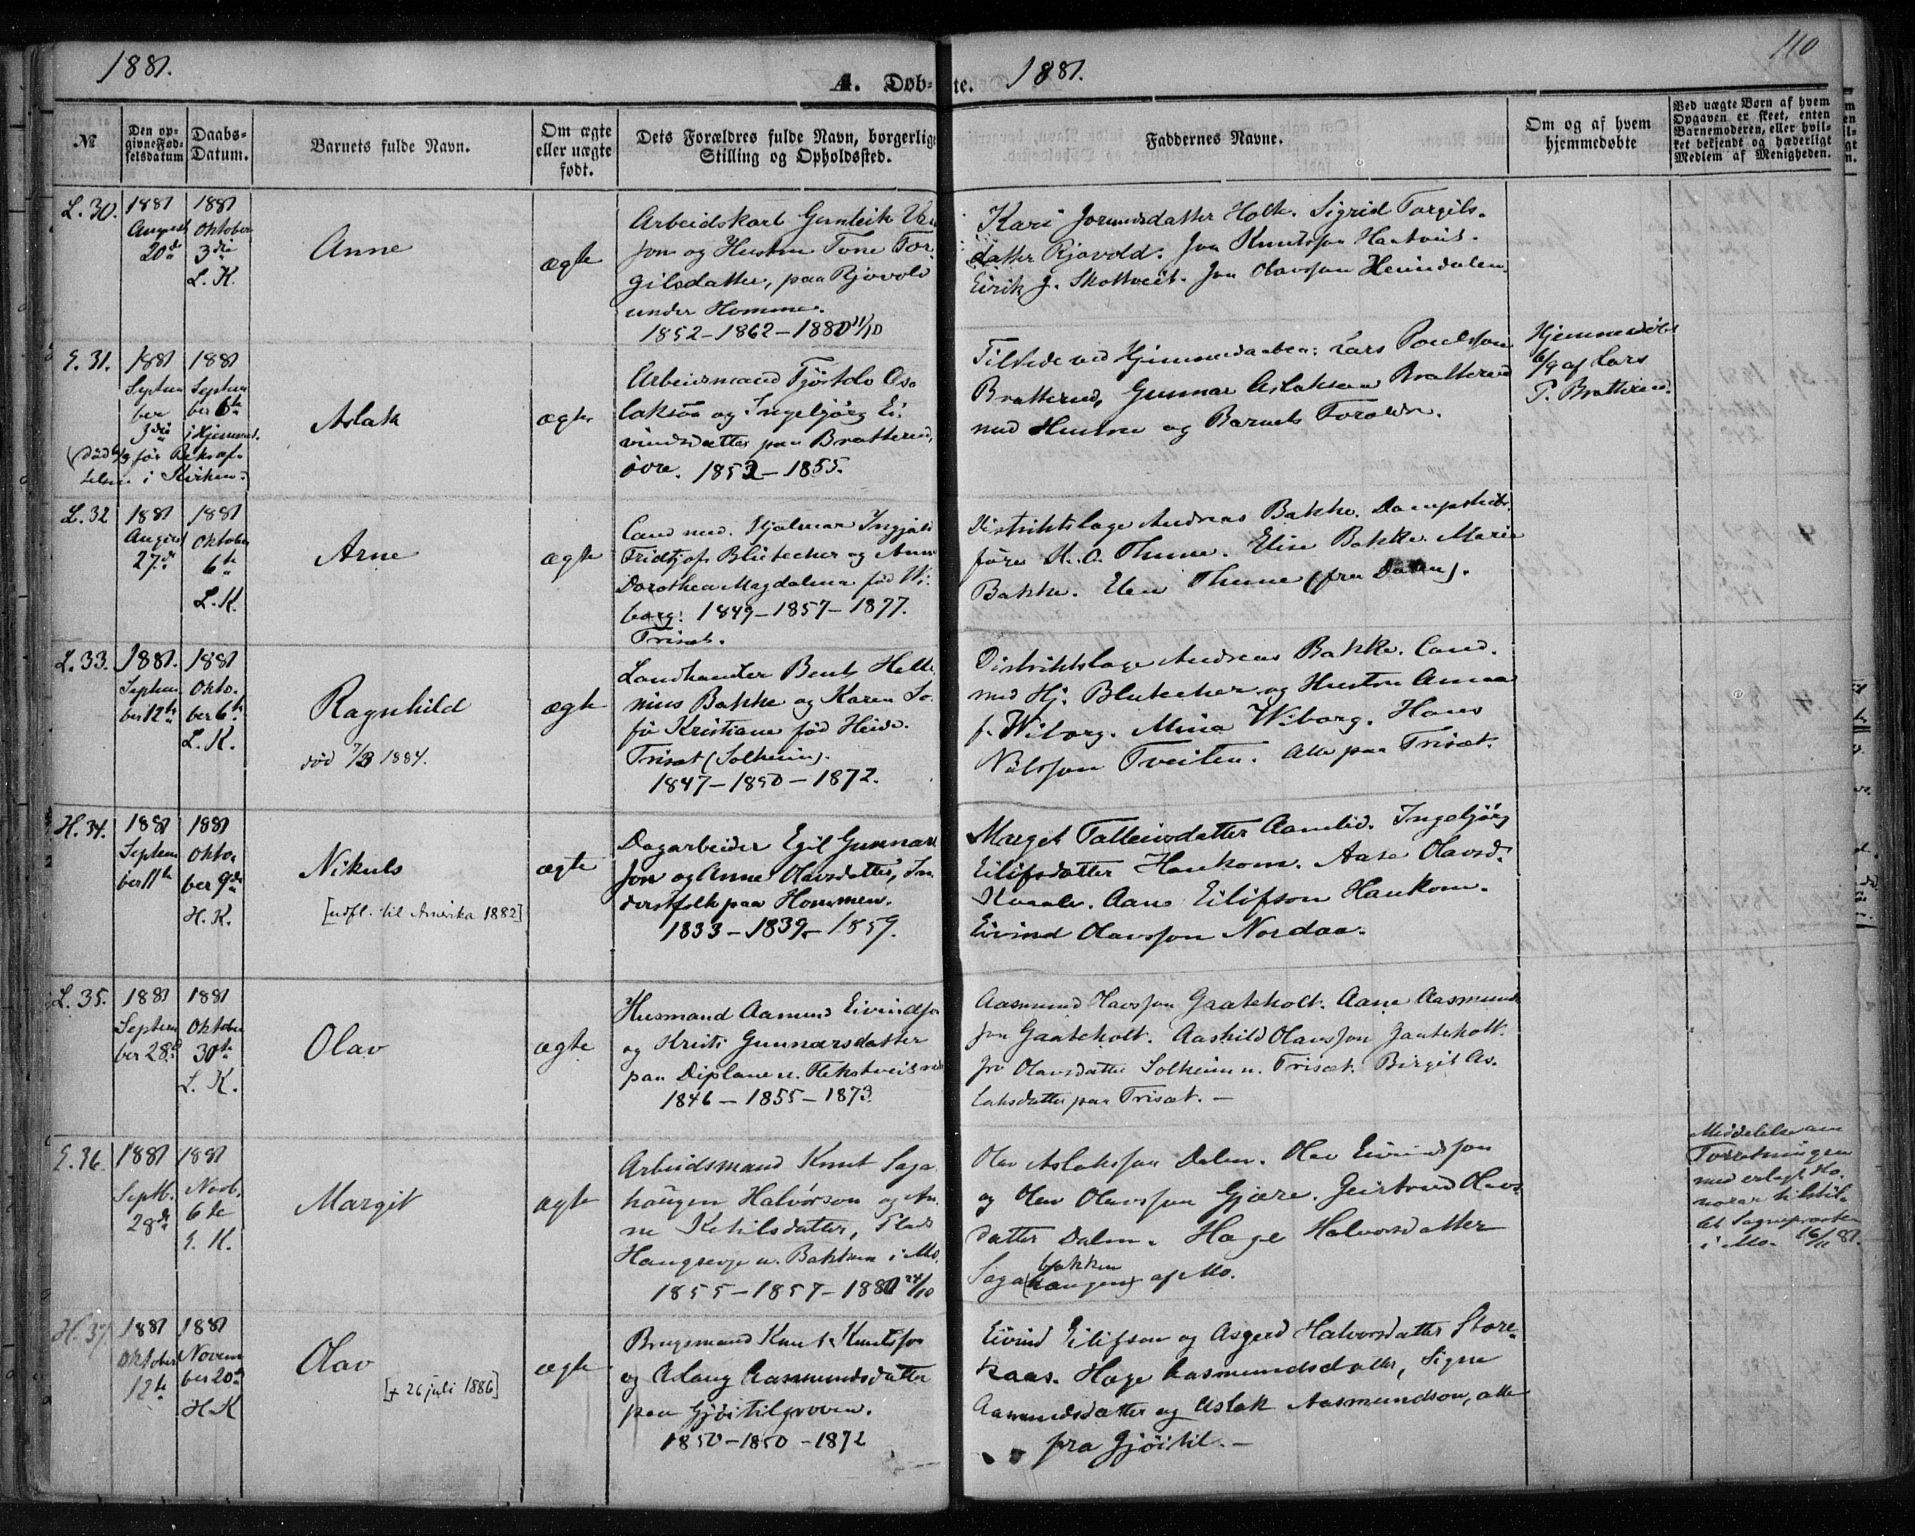 1881.
A. Døb-
te.
1881.
110
№
Den op-
givne Fød-
selsdatum
Daabs-
Datum.
Barnets fulde Navn.
Om ægte
eller uægte
født.
Dets Forældres fulde Navn, borgerlige
Stilling og Opholdssted.
Faddernes Navne.
Om og af hvem
hjemmedøbte
Ved uægte Børn af hvem
Opgaven er skeet, enten
Barnemoderen, eller hvil-
ket bekjendt og hæderligt
Medlem af Menigheden.
L. 30.
1881
August
20de
1881
Oktober
3die
L. K.
Anne
ægte
Arbeidskarl Gunleik
son og Hustru Tone Tor-
gilsdatter, paa Rjovold
under Homme.
1852 - 1862 - 1880 11/10
Kari Jorundsdatter Holte. Sigrid Torgils-
datter Rjovold. Jon Knutsson Hautveit.
Eirik J. Skottveit. Jon Olavsson Heimdalen.
E. 31.
1881
Septem
ber
3die
1881
Septem
ber 6te
i Hjemmet.
(død 6/9 før Bekræf-
telsen i Kirken.)
Aslak
ægte
Arbeidsmand Tjöstolv As-
lakson og Ingebjörg Ei-
vindsdatter paa Bratterud,
övre. 1852 - 1855.
Tilstede ved Hjemmedaaben: Lars Poulsson
Bratterud, Gunnar Aslakson Bratterud
med Hustru og Barnets Forældre.
Hjemmedöbt
6/9 af Lars
P. Bratterud.
L. 32
1881
August
27de
1881
Oktober
6te
L. K.
Arne
ægte
Cand. med. Hjalmar Ingjald
Fridtjof Blütecher og Anna
Dorothea Magdalena född Wi-
borg: 1849 - 1857 - 1877.
Trisæt.
Distriktslæge Andreas Bakke. Dampskibs-
fører H. O. Thune. Elise Bakke. Marie
Bakke. Elen Thune (fra Dalen).
L. 33.
1881.
Septem
ber 12te
1881
Okto-
ber 6te
L. K.
Ragnhild
död 7/3 1884.
ægte
Landhandler Bent Helle-
nius Bakke og Karen So-
fie Kristiane född Heide.
Trisæt (Solheim).
1847 - 1850 - 1872.
Distriktslæge Andreas Bakke. Cand.
med Hj. Blutecher og Hustru Anna
f. Wiborg. Mina Wiborg. Hans
Nielsson Tveiten. Alle paa Trisæt.
H. 34.
1881
Septem
ber 11te
1881
Okto-
ber 9de
H. K.
Nikuls
[udfl. til Amerika 1882]
ægte
Dagarbeider Egil Gunnar
son og Anne Olavsdatter, In-
derstfolk paa Hommen.
1833 - 1839 - 1859.
Marget Talleivsdatter Aamlid. Ingebjörg
Eilifsdatter Haukom. Aase Olavsd.
Aane Eilifson Haukom.
Eivind Olavsson Nordaa.
L. 35.
1881
Septem
ber 28de
1881
Oktober
30te
L. K.
Olav
ægte
Husmand Aamund Eivindson
og Kristi Gunnarsdatter
paa Diplane u. Flekstveit
1846 - 1855 - 1873.
Aasmund Olavsson Gaateholt. Aane Aasmund-
son Gaateholt. Aashild Olavsson Gaateholt.
Olavsdatter Solheim u. Trisæt. Birgit As-
laksdatter paa Trisæt. -
E. 36.
1881
Septb.
28de
1881
Novb.
6te
E. K.
Margit
ægte
Arbeidsmand Knut Saga
haugen Halvórson og An-
ne Ketilsdatter, Plads
u. Bakken i Mo.
1855 - 1857 - 1880 24/10
Olav Aslaksson Dalen. Olav Eivindsson
og Olav Olavsson Gjære. Geirtrud Olavs-
datter Dalen. Hæge Halvorsdatter
bakken
Saga (haugen) af Mo.
Middelelse om
Forretningen
med erlagt Ho-
norar tilstil-
let Sognepræsten
i Mo. 16/11 81.
H. 37
1881
Oktober
12te
1881
Novem
ber 20de
H. K
Olav
[+ 26 juli 1886]
ægte
Brugsmand Knut Knutsson
og Aslaug Aasmundsdatter
paa Gjöitilgroven.
1850 - 1850 - 1872
Eivind Eilifson og Asgerd Halvorsdatter Store-
kaas. Hæge Aasmundsdatter, Signe
Aasmundsdatter og Aslak Aasmundson, alle
fra Gjöitil. -